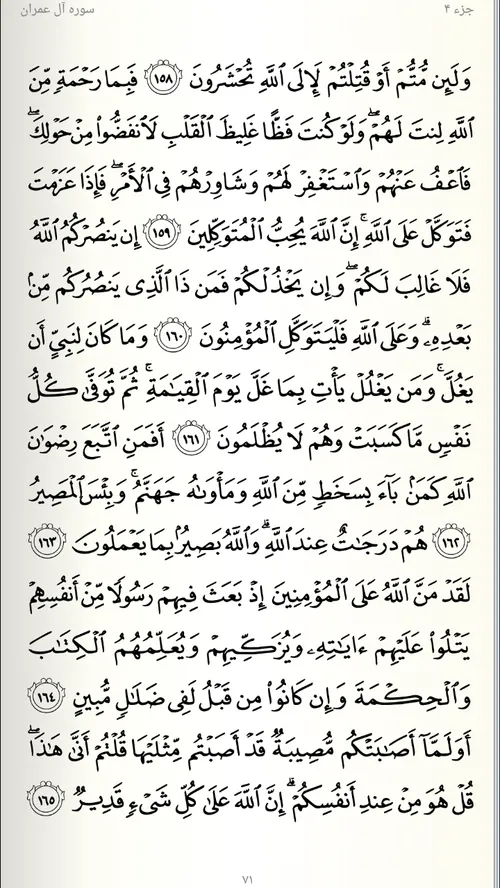 جزء ۴
سوره آل عمران
وَلَئِن مُّتُّمْ أَوْ قُتِلْتُمْ لَإِلَى ٱللَّهِ تُحْشَرُونَ ١٥٨ فَبِمَا رَحْمَةٍ مِّنَ
ٱللَّهِ لِنتَ لَهُمْ ۖ وَلَوْ كُنتَ فَظًّا غَلِيظَ ٱلْقَلْبِ لَٱنفَضُّوا۟ مِنْ حَوْلِكَ ۖ
فَٱعْفُ عَنْهُمْ وَٱسْتَغْفِرْ لَهُمْ وَشَاوِرْهُمْ فِى ٱلْأَمْرِ ۖ فَإِذَا عَزَمْتَ
فَتَوَكَّلْ عَلَى ٱللَّهِ ۚ إِنَّ ٱللَّهَ يُحِبُّ ٱلْمُتَوَكِّلِينَ ١٥٩ إِن يَنصُرْكُمُ ٱللَّهُ
فَلَا غَالِبَ لَكُمْ ۖ وَإِن يَخْذُلْكُمْ فَمَن ذَا ٱلَّذِى يَنصُرُكُم مِّنۢ
بَعْدِهِۦ ۗ وَعَلَى ٱللَّهِ فَلْيَتَوَكَّلِ ٱلْمُؤْمِنُونَ ١٦٠ وَمَا كَانَ لِنَبِىٍّ أَن
يَغُلَّ ۚ وَمَن يَغْلُلْ يَأْتِ بِمَا غَلَّ يَوْمَ ٱلْقِيَـٰمَةِ ۚ ثُمَّ تُوَفَّىٰ كُلُّ
نَفْسٍ مَّا كَسَبَتْ وَهُمْ لَا يُظْلَمُونَ ١٦١ أَفَمَنِ ٱتَّبَعَ رِضْوَٰنَ
ٱللَّهِ كَمَنۢ بَآءَ بِسَخَطٍ مِّنَ ٱللَّهِ وَمَأْوَىٰهُ جَهَنَّمُ ۚ وَبِئْسَ ٱلْمَصِيرُ
١٦٢ هُمْ دَرَجَـٰتٌ عِندَ ٱللَّهِ ۗ وَٱللَّهُ بَصِيرٌۢ بِمَا يَعْمَلُونَ ١٦٣
لَقَدْ مَنَّ ٱللَّهُ عَلَى ٱلْمُؤْمِنِينَ إِذْ بَعَثَ فِيهِمْ رَسُولًا مِّنْ أَنفُسِهِمْ
يَتْلُوا۟ عَلَيْهِمْ ءَايَـٰتِهِۦ وَيُزَكِّيهِمْ وَيُعَلِّمُهُمُ ٱلْكِتَـٰبَ
وَٱلْحِكْمَةَ وَإِن كَانُوا۟ مِن قَبْلُ لَفِى ضَلَـٰلٍ مُّبِينٍ ١٦٤
أَوَلَمَّآ أَصَـٰبَتْكُم مُّصِيبَةٌ قَدْ أَصَبْتُم مِّثْلَيْهَا قُلْتُمْ أَنَّىٰ هَـٰذَا ۖ
قُلْ هُوَ مِنْ عِندِ أَنفُسِكُمْ ۗ إِنَّ ٱللَّهَ عَلَىٰ كُلِّ شَىْءٍ قَدِيرٌ ١٦٥
۷۱